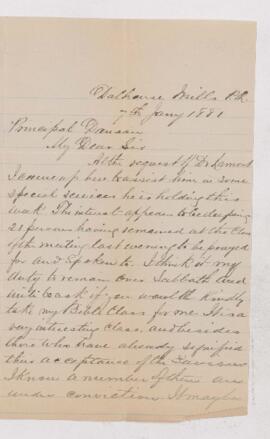 Dalhousie Mills P.Q.
7th Jany 1881
Principal Dawson
My Dear Sir
At the request of Dr Lamont
I came up here to assist him in some
special services he is holding this
week. The interest appears to be deepening
22 persons having remained at the close
of the meeting last evening to be prayed
for and spoken to. I think it my
duty to remain over Sabbath and
write to ask if you would kindly
take my Bible Class for me. It is a
very interesting class, and besides
those who have already signified
their acceptance of the Saviour
I know a number of them are
under conviction. It may be